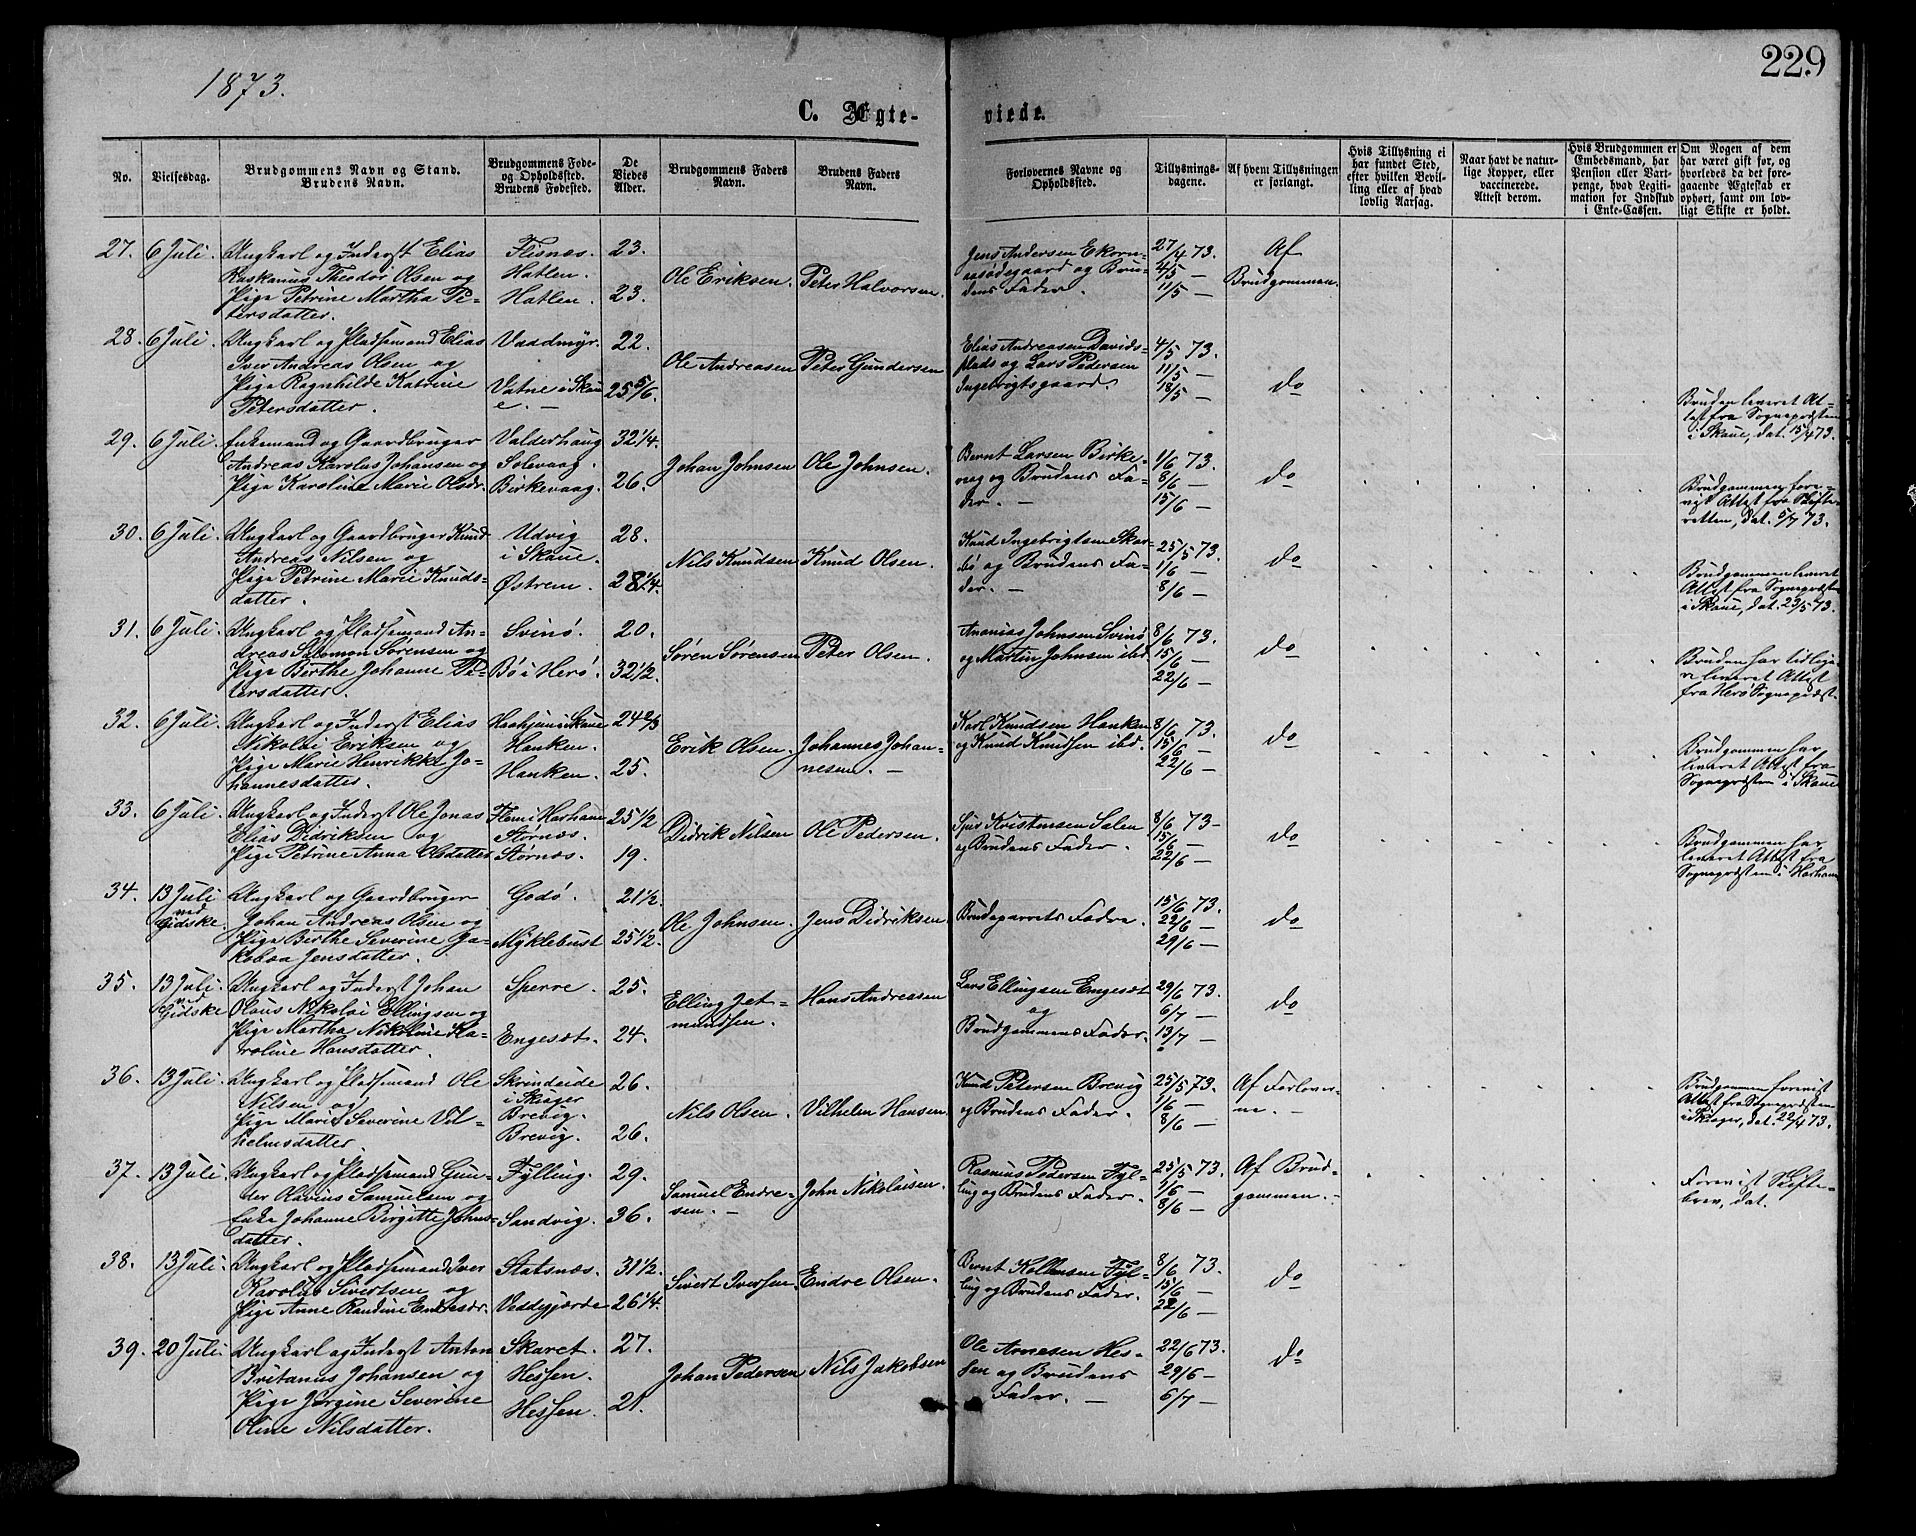 229
1873.
C. Ægte-
viede.
No.
Vielsesdag.
Brudgommens Navn og Stand.
Brudens Navn.
Brudgommens Føde-
og Opholdssted.
Brudens Fødested.
De
Viedes
Alder.
Brudgommens Faders
Navn.
Brudens Faders
Navn.
Forlovernes Navne og
Opholdssted.
Tillysnings-
dagene.
Af hvem Tillysningen
er forlangt.
Hvis Tillysning ei
har fundet Sted,
efter hvilken Bevil-
ling eller af hvad
lovlig Aarsag.
Naar havt de natur-
lige Kopper, eller
vaccinerede.
Attest derom.
Hvis Brudgommen er
Embedsmand, har
Pension eller Vart-
penge, hvad Legiti-
mation for Indskud
i Enke-Cassen.
Om Nogen af dem
har været gift før, og
hvorledes da det fore-
gaaende Ægteskab er
ophørt, samt om lov-
ligt Skifte er holdt.
27. 6 Juli. Ungkarl og Inderst Elias Flisnæs. 23.
Theodor Olsen og Hatlen.
Pige Petrine Martha Pe- Hatlen. 23.
tersdatter.
Ole Eriksen. Peter Halvorsen.
Jens Andersen Ekorn- 27/4 73. Af
næsødegaard og Bru- 4/5 — Brudgommen.
dens Fader. 11/5 —
28. 6 Juli. Ungkarl og Pladsemand Elias Vaadmyr. 22.
Iver Andreas Olsen og
Pige Ragnhilde Katrine Vatne i Skau- 25 5/6.
Petersdatter. e. —
Ole Andreasen Peter Gundersen
Elias Andreasen Davids- 4/5 73.
plads og Lars Pedersen 11/5 — do
Ingebrigtsgaard. 18/5 —
Bruden leveret At-
test fra Sognepræsten
i Skaue, dat. 15/4 73.
29. 6 Juli. Enkemand og Gaardbruger Valderhaug 32 1/4.
Andreas Karolus Johansen og Solevaag.
Pige Karoline Marie Olsdr. Birkevaag. 26.
Johan Johnsen Ole Johnsen.
Bernt Larsen Birke- 1/6 73.
vaag og Brudens Fa- 8/6 — do
der. — 15/6 —
Brudgommen fore-
vist Attest fra Skifte-
retten, dat. 5/7 73.
30. 6 Juli. Ungkarl og Gaardbruger Knud Udvig 28.
Andreas Nilsen og i Skaue.
Pige Petrine Marie Knuds- Østrem. 28 1/4.
datter.
Nils Knudsen Knud Olsen.
Knud Ingebrigtsen Skar- 25/5 73.
bø og Brudens Fa- 1/6 — do
der. — 8/6 —
Brudgommen leveret
Attest fra Sognepræsten
i Skaue, dat. 23/5 73.
31. 6 Juli. Ungkarl og Pladsemand An- Svinø. 20.
dreas Salomon Sørensen og
Pige Berthe Johanne Pe- Bø i Herø. 32 1/2.
tersdatter.
Søren Sørensen Peter Olsen.
Ananias Johnsen Svinø 8/6 73.
og Martin Johnsen ibd. 15/6 — do
22/6 —
Bruden har tidlige-
re leveret Attest
fra Herø Sognepræst.
32. 6 Juli. Ungkarl og Inderst Elias i Skaue 24 2/3
Nikolai Eriksen og Hanken.
Pige Marie Henrikke Jo- Hanken. 25.
hannesdatter.
Erik Olsen. Johannes Johan-
nesen. —
Karl Knudsen Hanken 8/6 73.
og Knud Knudsen ibd. 15/6 — do
22/6 —
Brudgommen har
leveret Attest fra
Sognepræsten i Skaue
33. 6 Juli. Ungkarl og Inderst Ole Jonas Flem i Harham 25 1/2
Elias Didriksen og Størnæs.
Pige Petrine Anna Olsdatter Størnæs. 19.
Didrik Nilsen Ole Pedersen.
Sjur Kristensen Salen 8/6 73 —
og Brudens Fader. 15/6 — do
22/6 —
Brudgommen har
leveret Attest fra
Sognepræsten i Harham
34. 13 Juli Ungkarl og Gaardbruger Godø. 21 1/2.
ved Johan Andreas Olsen og
Gidske. Pige Berthe Severine Ja- Myklebust 25 1/2.
kobaa Jensdatter.
Ole Johnsen. Jens Didriksen
Brudeparrets Fædre. 15/6 73.
22/6 — do
29/6 —
35. 13 Juli. Ungkarl og Inderst Johan Sperre. 25.
ved Olaus Nikolai Ellingsen og
Gidske Pige Martha Nikoline Ka- Engesæt. 24.
roline Hansdatter.
Elling Jet- Hans Andreasen
mundsen.
Lars Ellingsen Engesæt 29/6 73.
og 6/7 — do
Brudgommens Fader. 13/7 —
36. 13 Juli. Ungkarl og Pladsemand Ole Skrindeide 26.
Nilsen og i Skager
Pige Marie Severine Vil- Brevig.
helmsdatter. Brevig. 26.
Nils Olsen. Vilhelm Hansen.
Knud Petersen Brevig 25/5 73. Af Forlover-
og Brudens Fader. 1/6 — ne. —
8/6 —
Brudgommen forevist
Attest fra Sognepræsten
i Skager, dat. 22/4 73.
37. 13 Juli. Ungkarl og Pladsemand Gun- Fylling. 29.
der Olavius Samuelsen og
Enke Johanne Birgitte Johns- Sandvig. 36.
datter.
Samuel Endre- John Nikolaisen.
sen. —
Rasmus Pedersen Fyl- 25/5 73. Af Brud-
ling og Brudens Fader. 1/6 — gommen. —
8/6 —
Forevist Skifte-
brev, dat.
38. 13 Juli. Ungkarl og Pladsemand Iver Statsnæs. 31 1/2.
Karolus Sivertsen og
Pige Anne Randine Endresdr. Veddegjærde 26 1/4.
Sivert Iversen Endre Olsen.
Bernt Kolbensen Fyl- 8/6 73.
ling og Brudens Fader. 15/6 — do
22/6 —
39. 20 Juli. Ungkarl og Inderst Anton Skaret. 27.
Britanus Johansen og Hessen.
Pige Jørgine Severine Hessen. 21.
Oline Nilsdatter.
Johan Pedersen Nils Jakobsen
Ole Arnesen Hes- 22/6 73.
sen og Brudens 29/6 — do
Fader. — 6/7 —